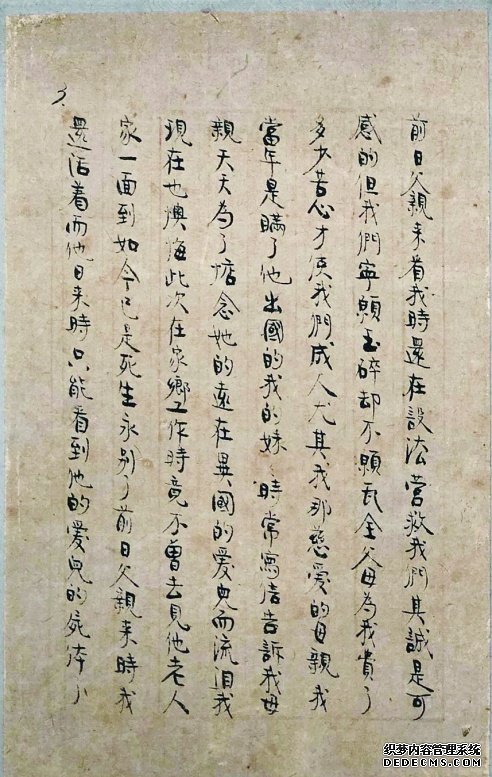 3.
前日父親来看我時還在設法营救我們其誠是可
感的但我們寧願玉碎却不願瓦全父母為我費了
多少苦心才使我們成人尤其我那慈爱的母親我
當年是瞞了他出國的我的妹時常寫信告訴我母
親天天為了惦念她的遠在異國的爱児而流泪我
現在也懊悔此次在家鄉工作時竟不曽去見他老人
家一面到如今已是死生永别了前日父親来時我
還活着而他日来時只能看到他的愛児的屍体
织梦内容管理系统
DEDECMS.COM